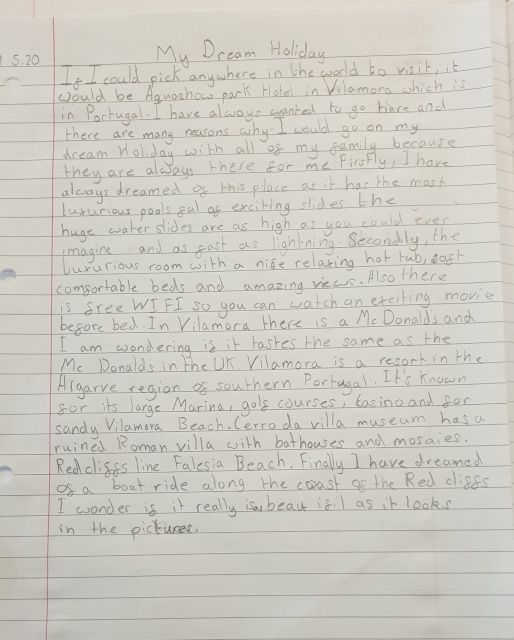 5.20
My Dream Holiday
If I could pick anywhere in the world to visit, it
would be Aquashow park Hotel in Vilamora which is
in Portugal. I have always wanted to go here and
there are many reasons why. I would go on my
dream Holiday with all of my family because
they are always there for me Firstly, I have
always dreamed of this place as it has the most
luxurious pools ful of exciting slides the
huge water slides are as high as you could ever
imagine and as fast as lightning. Secondily, the
Luxurious room with a nice relaxing hot tub, soft
comfortable beds and amazing views. Also there
is free WIFI so you can watch an exciting movie
before bed In Vilamora there is a McDonalds and
I am wondering if it tastes the same as the
Mc Donalds in the UK Vilamora is a resort in the
Algarve region of southern Portugal. It's known
for its large Marina, golf courses, Casino and for
sandy Vilamora Beach. Cerro da villa museum has a
ruined Roman villa with bathouses and mosaics.
Red cliffs line Falesia Beach. Finally I have dreamed
of a boat ride along the coast of the Red cliffs
I wonder if it really is as beautifil as it looks
in the pictures.